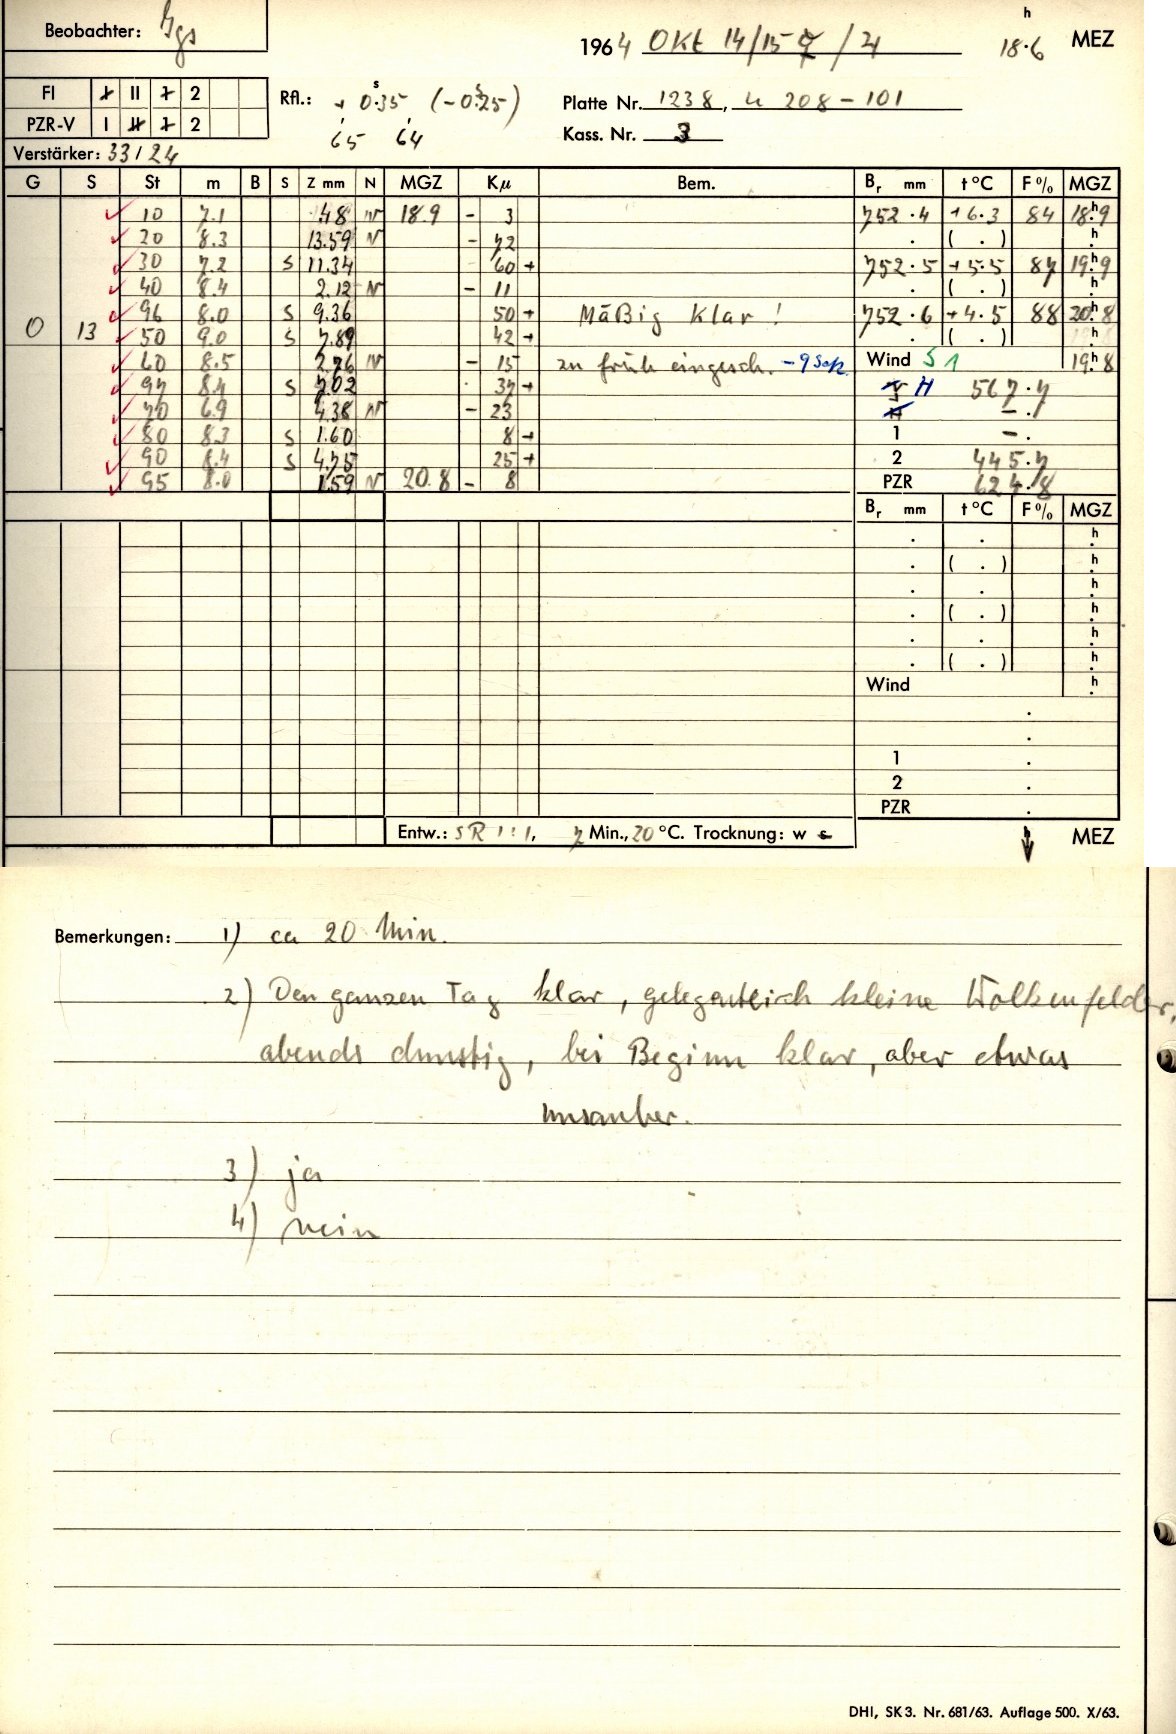 Beobachter: Ggs
1964 Okt 14/15 / 21 18.6 h MEZ
Fl I II 1 2
PZR-V I II 1 2
Rfl.: + 0.35 s (- 0.25 s)
65 64
Platte Nr. 1238, u 208-101
Kass. Nr. 3
Verstärker: 33/24
G S St m B S Z mm N MGZ Kµ Bem. Br mm t °C F % MGZ
10 7.1 .48 N 18.9 - 3 752.4 +6.3 84 18.9 h
20 8.3 13.59 N - 72 . ( . ) . h
30 7.2 S 11.34 60 + 752.5 +5.5 87 19.9 h
40 8.4 2.12 N - 11 . ( . ) . h
96 8.0 S 9.36 50 + Mäßig klar ! 752.6 +4.5 88 20.8 h
0 13 50 9.0 S 7.89 42 + . ( . ) h
60 8.5 2.76 N - 15 zu früh eingesch. - 9 Wind S 1 19.8 h
97 8.4 S 7.02 37 + H 567.7
70 6.9 4.38 N - 23 H - .
80 8.3 S 1.60 8 + 1 - .
90 8.4 S 4.75 25 + 2 445.7
95 8.0 1.59 N 20.8 - 8 PZR 624.8
Br mm t °C F % MGZ
. . . h
. ( . ) . h
. . . h
. ( . ) . h
. . . h
. ( . ) . h
Wind . h
.
.
1 .
2 .
PZR .
Entw.: SR 1:1, 7 Min., 20 °C. Trocknung: w s h MEZ
Bemerkungen: 1) ca 20 Min.
2) Den ganzen Tag klar, gelegentlich kleine Wolkenfelder,
abends dunstig, bei Beginn klar, aber etwas
unsauber.
3) ja
4) nein
DHI, SK 3. Nr. 681/63. Auflage 500. X/63.